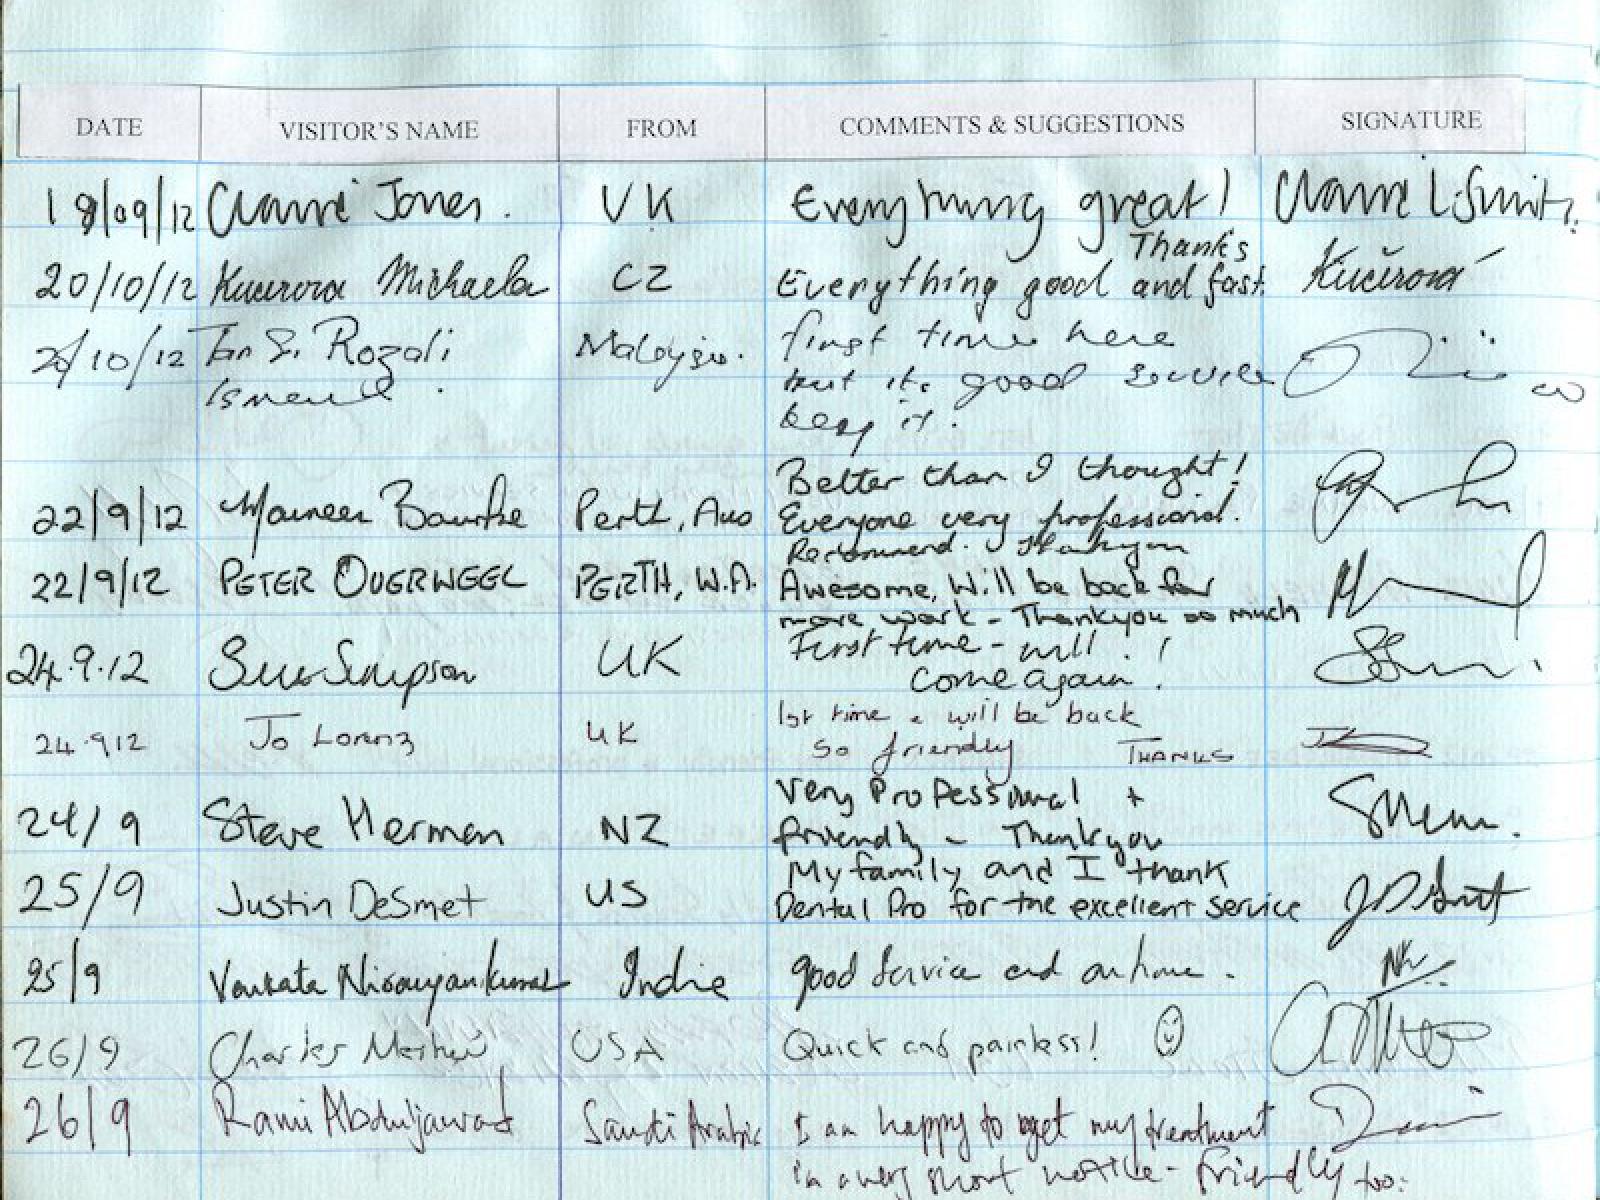 DATE VISITOR'S NAME FROM COMMENTS & SUGGESTIONS SIGNATURE
18/09/12 Claire Jones. UK Everything great! Claire L Smith
Thanks
20/10/12 Kucerova Michaela CZ Everything good and fast. Kučerová
21/10/12 Tan S. Rozali Malaysia. first time here
Ismail. but its good service
keep it.
Better than I thought!
22/9/12 Maureen Bourke Perth, Aus Everyone very professional.
Recommend. Thankyou
22/9/12 PETER OVERWEEL PERTH, W.A. Awesome, Will be back for
more work - Thankyou so much
24.9.12 Sue Simpson UK First time - will
come again!
24.9 12 Jo Lorenz UK 1st time & will be back
so friendly THANKS
24/9 Steve Herman NZ Very Professional +
friendly - Thankyou
25/9 Justin DeSmet US My family and I thank
Dental Pro for the excellent service
25/9 Venkata Niranjankumar India good service and on time.
26/9 Charles USA Quick and painless!
26/9 Rami Abduljawad Saudi Arabia I am happy to get my treatment
in a very short notice - friendly too.